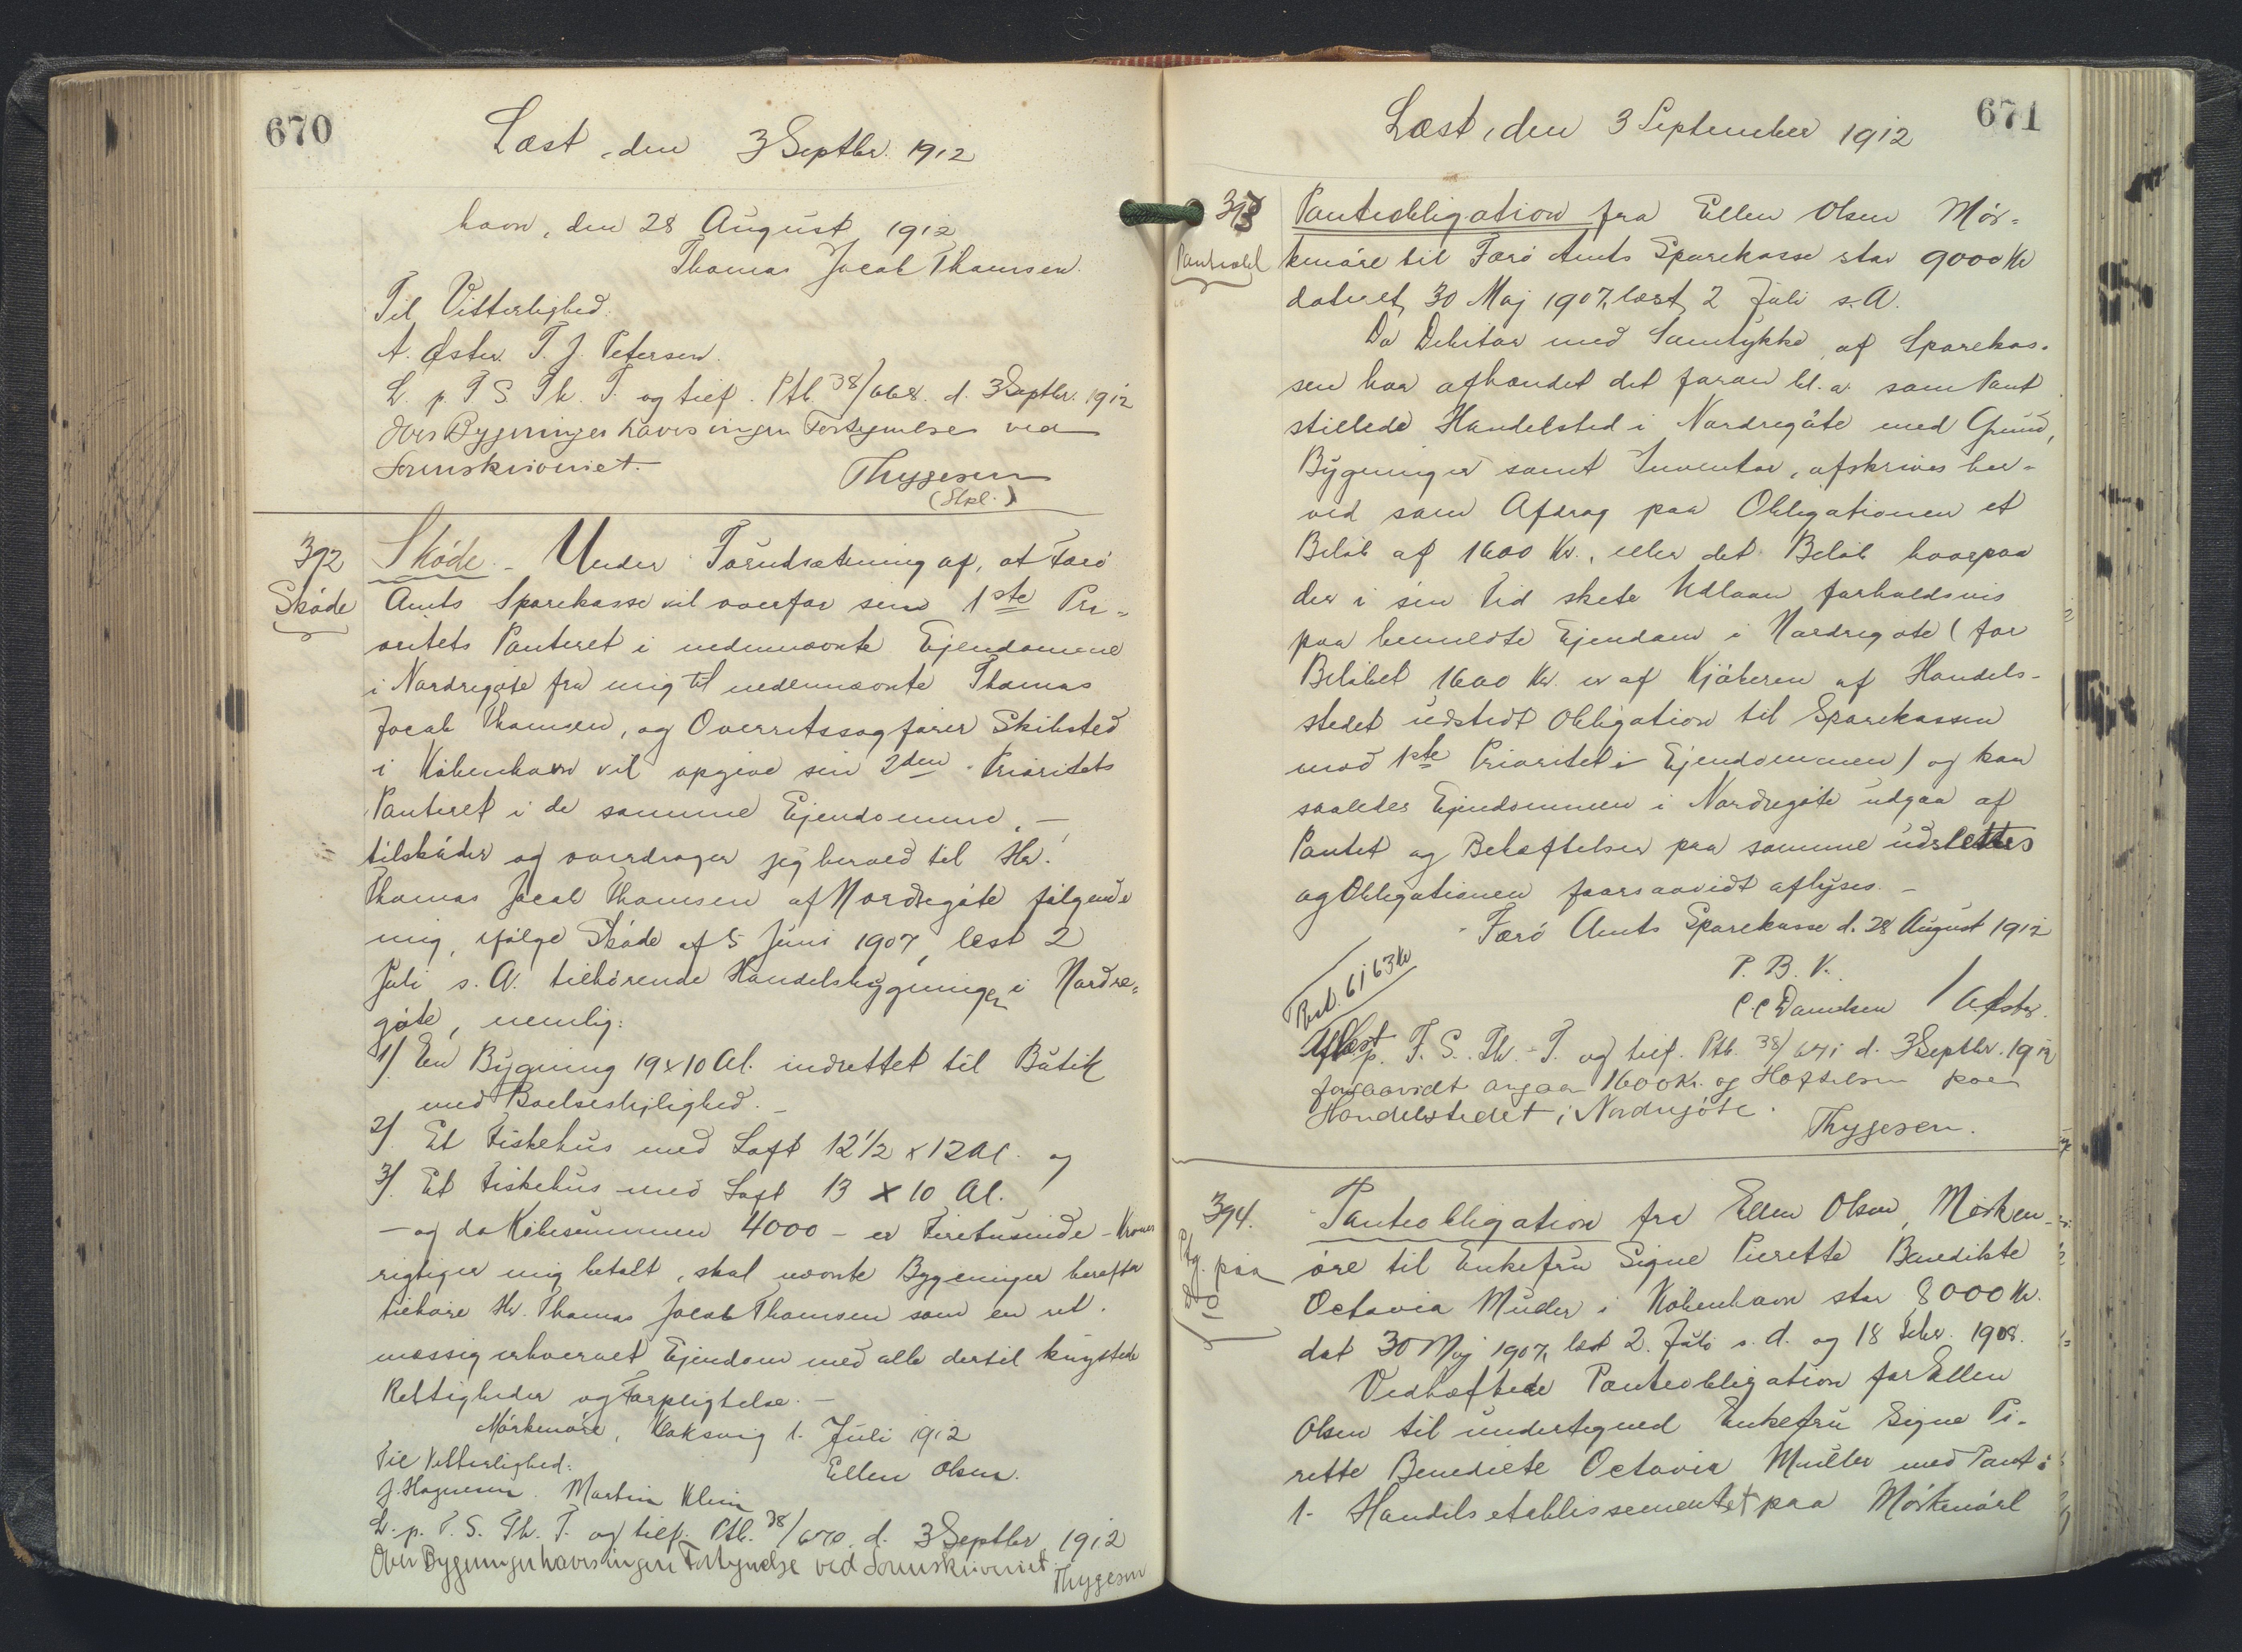 670
Læst, den 3 Septbr. 1912
havn, den 28 August 1912
Thomas Jacob Thomsen.
Til Vitterlighed:
A. Øster. T. J. Petersen.
L. p. T. S. Th. T. og tief. Ptb. 38/668. d. 3 Septbr. 1912
Over Bygninger haves ingen Forsynelse ved
Sorenskriveriet.
Thygesen
(Stpl.)
392
Skøde
Skøde. - Under Forudsætning af, at Færø
Amts Sparekasse vil overfor sin 1ste Pri-
oritets Panteret i nedennævnte Ejendomme
i Nordregøte fra mig til nedennævnte Thomas
Jacob Thomsen, og Overretssagfører Skibsted
i København vil opgive sin 2den Prioritets
Panteret i de samme Ejendomme, -
tilskøder og overdrager jeg herved til Hr.
Thomas Jacob Thomsen af Nordregøte følgende
mig, ifølge Skøde af 5 Juni 1907, læst 2
Juli s. A. tilhørende Handelsbygninger i Nordre-
gøte, nemlig:
1/. En Bygning 19 x 10 Al. indrettet til Butik
med Boelseslejlighed. -
2/. Et Fiskehus med Loft 12 1/2 x 12 Al. og
3/. Et Fiskehus med Loft 13 x 10 Al.
- og da Købesummen 4000 - er Firetusinde - Kroner
rigtigen mig betalt, skal nævnte Bygninger herefter
tilhøre Hr. Thomas Jacob Thomsen som en ret-
mæssig erhvervet Ejendom med alle dertil knyttede
Rettigheder og Forpligtelse. -
Mørkenøre, Klaksvig 1. Juli 1912
Til Vitterlighed:
Ellen Olsen.
J. Hognesen. Martin Klein
L. p. T. S. Th. T. og tief. Ptb. 38/670. d. 3 Septbr. 1912
Over Bygninger haves ingen Forsynelse ved Sorenskriveriet.
Thygesen
671
Læst, den 3 September 1912
393
Panteobl
Panteobligation fra Ellen Olsen Mør-
kenøre til Færø Amts Sparekasse stor 9000 Kr
dateret 30 Maj 1907, læst 2 Juli s. A.
Da Debitor med Samtykke af Sparekas-
sen har afhændet det foran bl. a. som Pant
stillede Handelsted i Nordregøte med Grund,
Bygninger samt Inventar, afskrives her-
ved som Afdrag paa Obligationen et
Beløb af 1600 Kr., eller det Beløb hvorpaa
der i sin Tid skete Udlaan forholdsvis
paa benmeldte Ejendom i Nordregøte (for
Beløbet 1600 Kr. er af Kjøberen af Handels-
stedet udstedt Obligation til Sparekassen
mod 1ste Prioritet i Ejendommen) og kan
saaledes Ejendommen i Nordregøte udgaa af
Pantet og Behæftelsen paa samme udslettes
og Obligationen forsaavidt aflyses. -
Færø Amts Sparekasse d. 28 August 1912
P. B. V.
C. C Danielsen / A. Øster.
Rest. 6163 Kr
Aflæst p. F. S. Th. T. og tief. Ptb. 38/671 d. 3 Septbr. 1912
forsaavidt angaar 1600 Kr. og Hæftelsen paa
Handelstedet i Nordregøte.
Thygesen.
394.
Ptg. paa
Do
Panteobligation fra Ellen Olsen, Mørken-
øre til Enkefru Signe Pierette Benedikte
Octavia Müller i København stor 8000 Kr.
dat 30 Maj 1907, læst 2. Juli s. A. og 18 Febr. 1908.
Vedhæftede Panteobligation for Ellen
Olsen til undertegned Enkefru Signe Pi-
rette Benedicte Octavia Müller med Pant i
1. Handelsetablissementet paa Mørkenøre